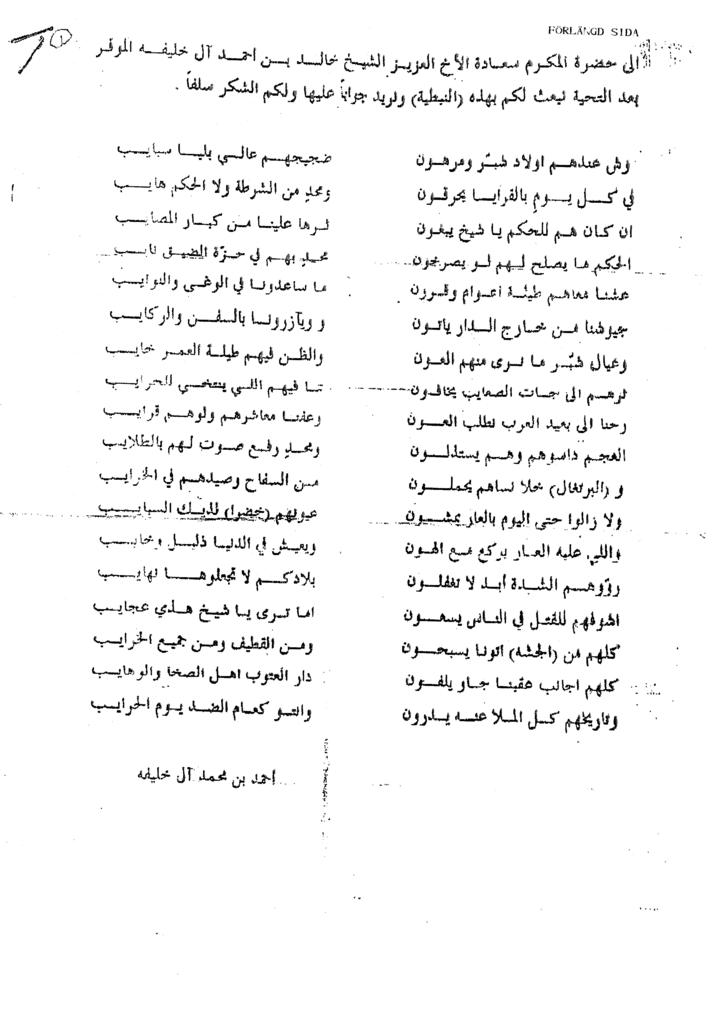 FÖRLÄNGD SIDA
١
الى حضرة المكرم سعادة الأخ العزيز الشيخ خالد بن احمد آل خليفه الموقر
بعد التحية نبعث لكم بهذه (النبطية) ونريد جواباً عليها ولكم الشكر سلفاً .
وش عندهم اولاد شبّر ومرهون ضجيجهم عالي بليا سبايب
في كل يوم بالقرايا يحرقون ومحدٍ من الشرطة ولا الحكم هايب
ان كان هم للحكم يا شيخ يبغون ترها علينا من كبار المصايب
الحكم ما يصلح لهم لو يصرخون محدٍ بهم في حزّة الضيق نايب
عشنا معاهم طيلة أعوام وقرون ما ساعدونا في الوغى والنوايب
جيوشنا من خارج الدار ياتون و ويآزرونا بالسفن والركايب
وعيال شبّر ما نرى منهم العون والظن فيهم طيلة العمر خايب
ترهم الى جات الصعايب يخافون ما فيهم اللي ينتخي للحرايب
رحنا الى بعيد العرب نطلب العون وعفنا معاشرهم ولوهم قرايب
العجم داسوهم وهم يستذلون ومحدٍ رفع صوت لهم بالطلايب
و (البرتغال) خلا نساهم يحملون من السفاح وصيدهم في الخرايب
ولا زالوا حتى اليوم بالعار يمشون عيونهم (خضرا) لذيك السبايب
واللي عليه العار يركع مع الهون ويعيش في الدنيا ذليل وخايب
روّوهم الشدة أبد لا تغفلون بلادكم لا تجعلوها نهايب
اشوفهم للقتل في الناس يسعون اما ترى يا شيخ هذي عجايب
كلهم من (الجشه) اتونا يسبحون ومن القطيف ومن جميع الخرايب
كلهم اجانب عقبنا جاو يلفون دار العتوب اهل الصخا والوهايب
وتاريخهم كل الملا عنه يدرون وانتو كعام الضد يوم الحرايب
أحمد بن محمد آل خليفه